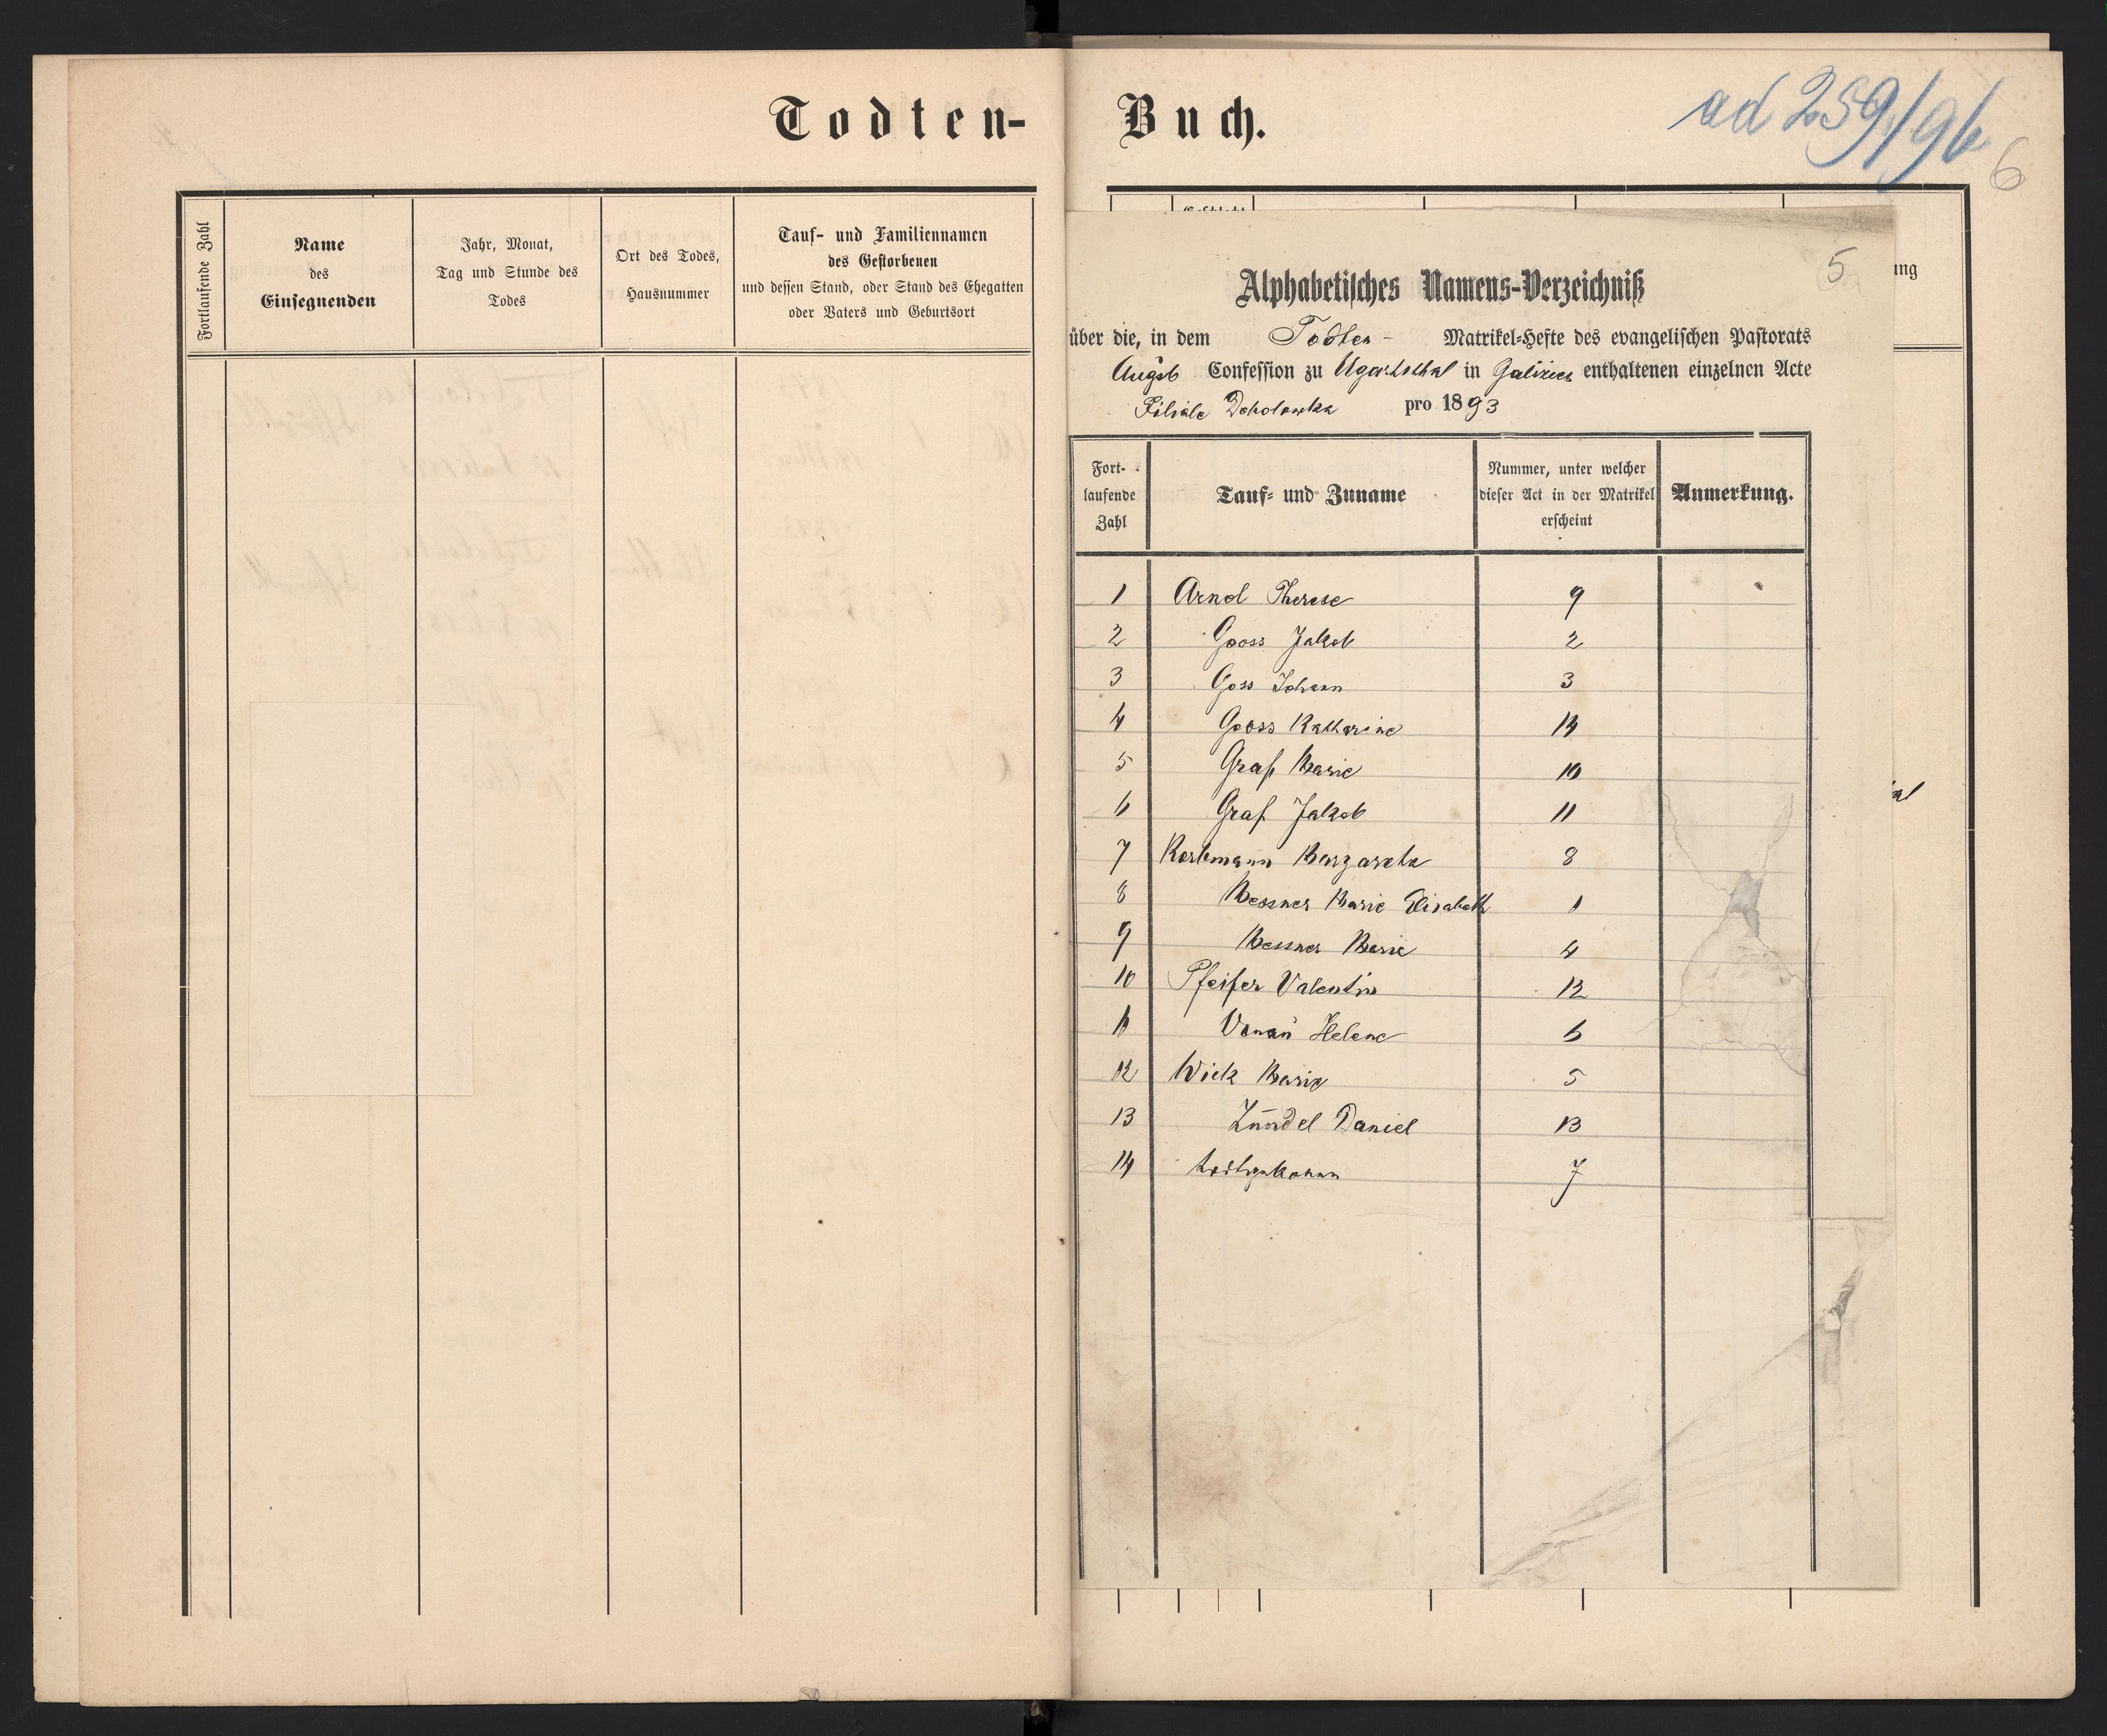 Todten-
Buch.
ad 259/96
6
Fortlaufende Zahl
Name
des
Einsegnenden
Jahr, Monat,
Tag und Stunde des
Todes
Ort des Todes,
Hausnummer
Tauf- und Familiennamen
des Gestorbenen
und dessen Stand, oder Stand des Ehegatten
oder Vaters und Geburtsort
ung
5
Alphabetisches Namens-Verzeichniß
über die, in dem Todten- Matrikel-Hefte des evangelischen Pastorats
Augsb Confession zu Ugartsthal in Galizien enthaltenen einzelnen Acte
Filiale pro 1893
Fort-
laufende
Zahl
Tauf- und Zuname
Nummer, unter welcher
dieser Act in der Matrikel
erscheint
Anmerkung.
1 Arnol Therese 9
2 Gooss Jakob 2
3 Goss Johann 3
4 Gooss Katharine 14
5 Graf Marie 10
6 Graf Jakob 11
7 Margaretha 8
8 Messner Marie Elisabeth 1
9 Messner Marie 4
10 Pfeifer Valentin 12
11 Helene 6
12 Wick Marie 5
13 Zündel Daniel 13
14 7